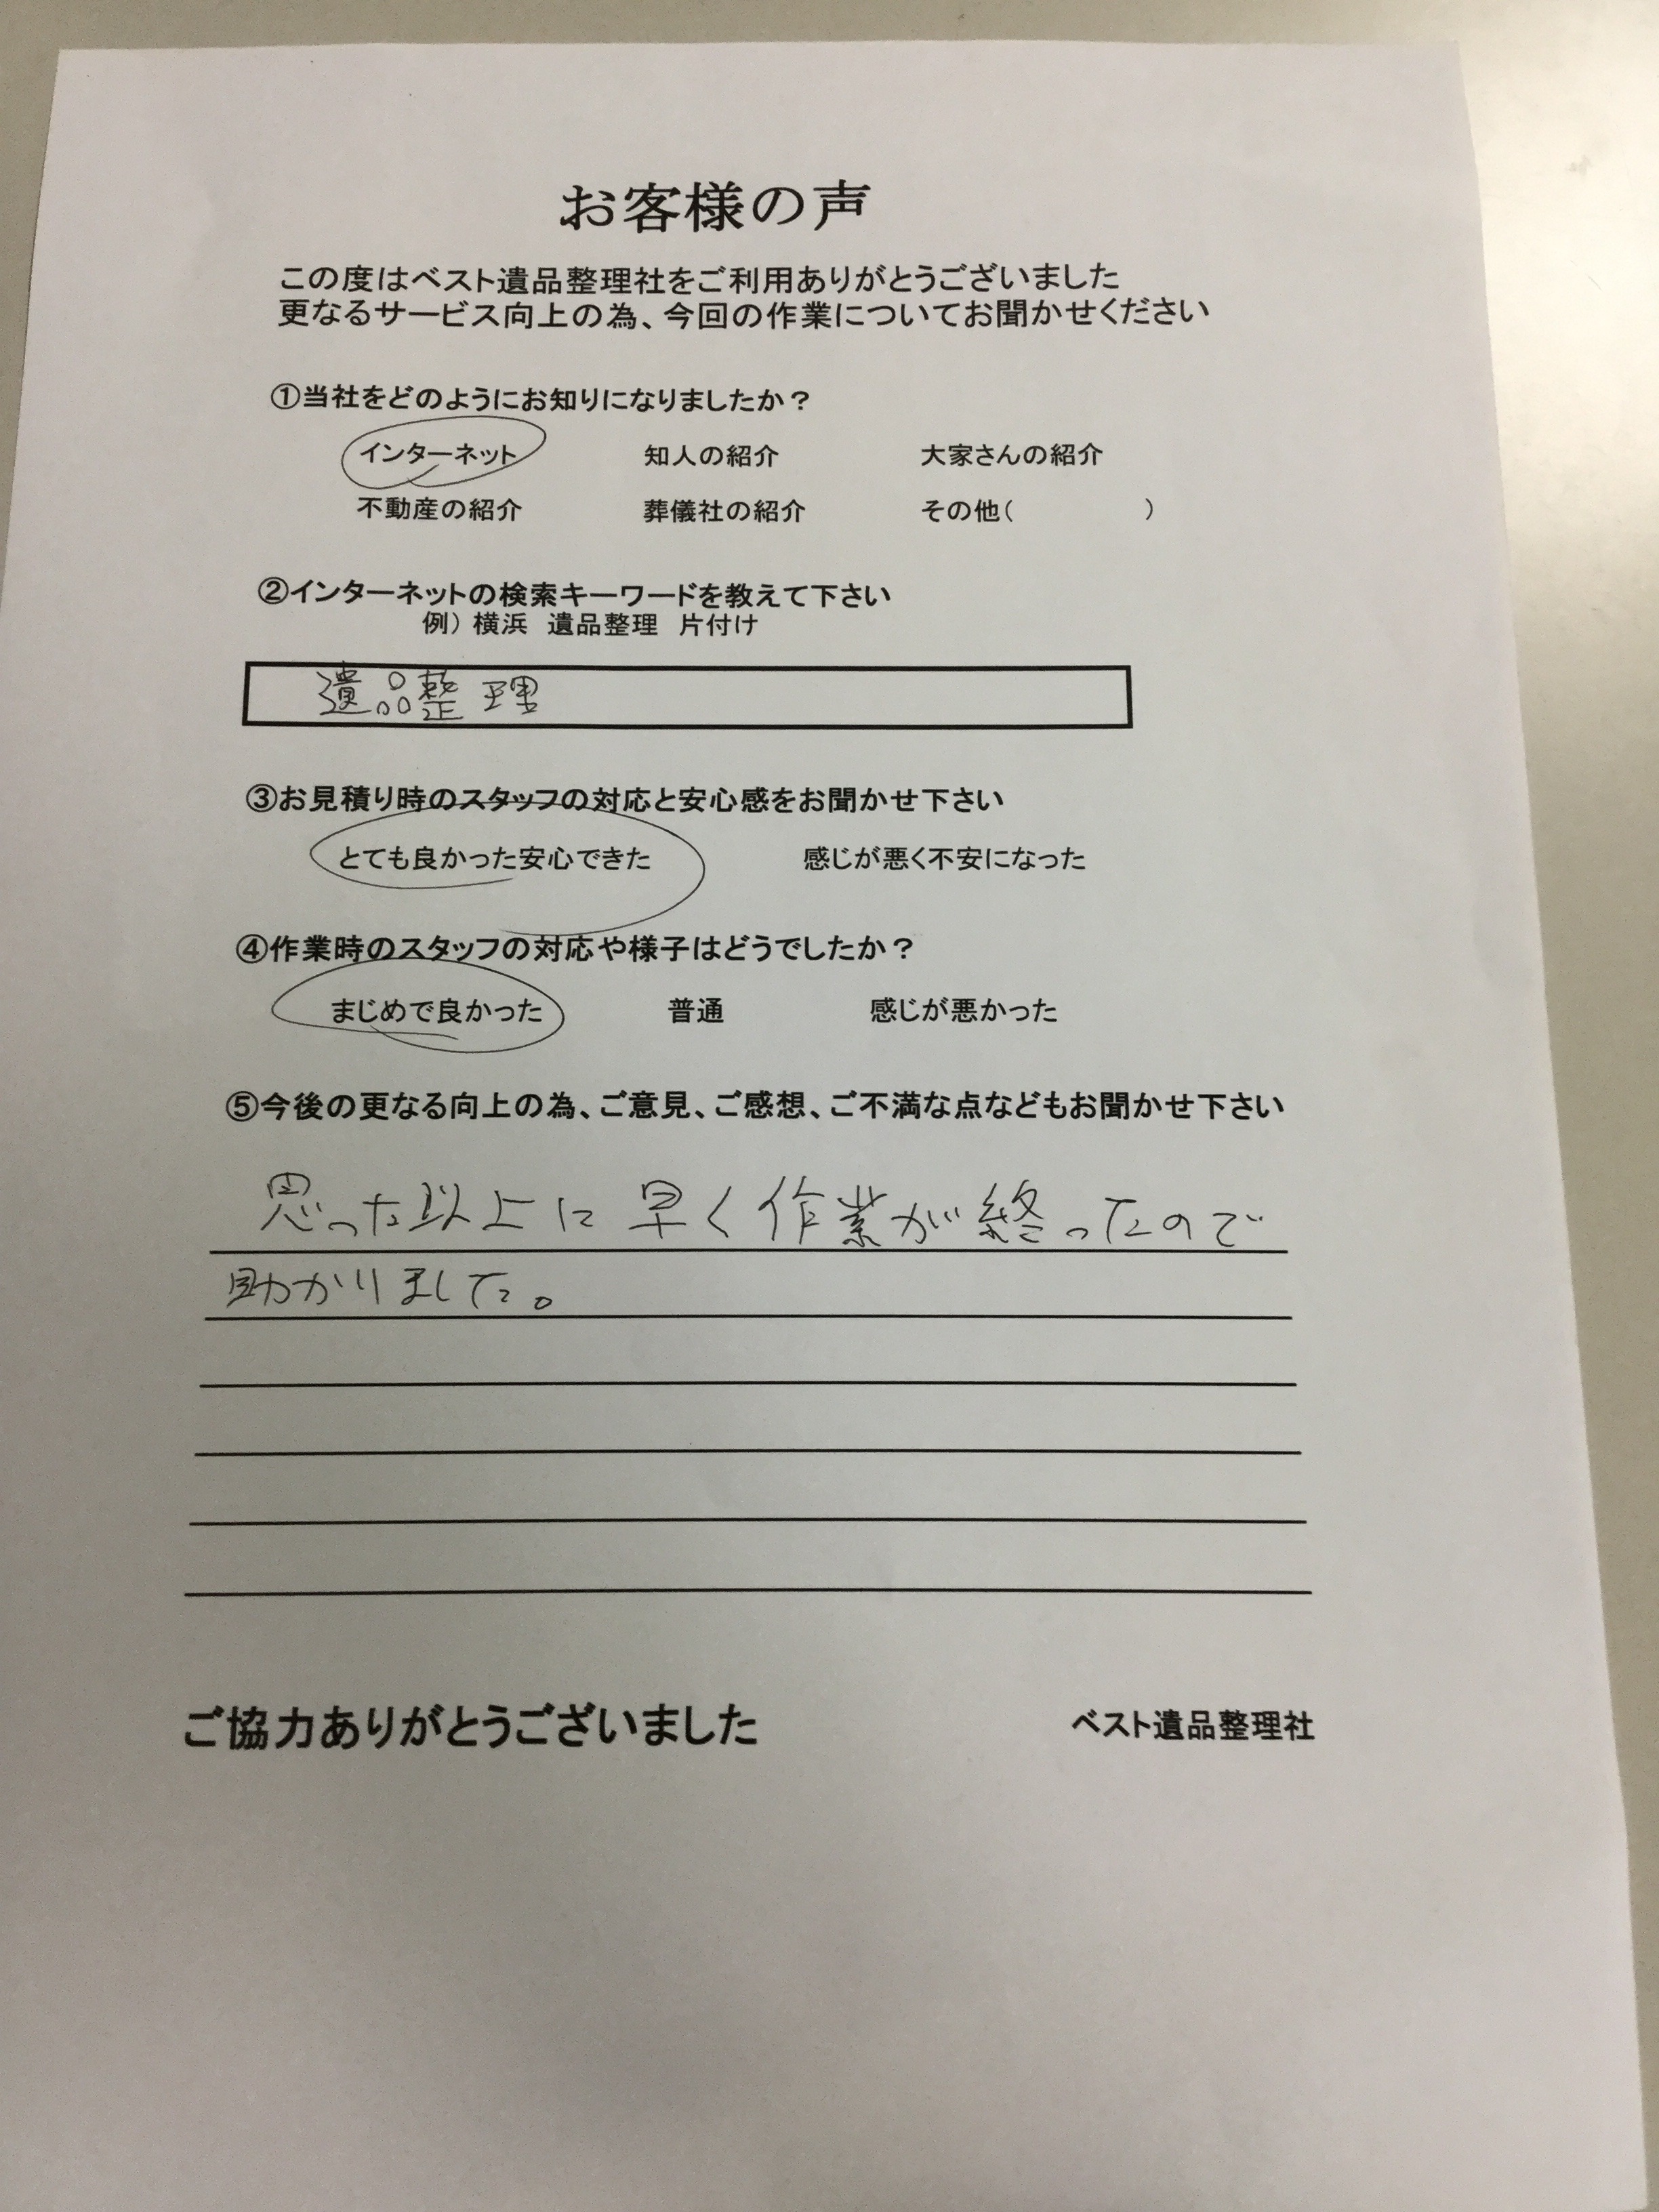 お客様の声
この度はベスト遺品整理社をご利用ありがとうございました
更なるサービス向上の為、今回の作業についてお聞かせください
①当社をどのようにお知りになりましたか？
インターネット 知人の紹介 大家さんの紹介
不動産の紹介 葬儀社の紹介 その他（ ）
②インターネットの検索キーワードを教えて下さい
例）横浜 遺品整理 片付け
遺品整理
③お見積り時のスタッフの対応と安心感をお聞かせ下さい
とても良かった安心できた 感じが悪く不安になった
④作業時のスタッフの対応や様子はどうでしたか？
まじめで良かった 普通 感じが悪かった
⑤今後の更なる向上の為、ご意見、ご感想、ご不満な点などもお聞かせ下さい
思った以上に早く作業が終ったので
助かりました。
ご協力ありがとうございました ベスト遺品整理社